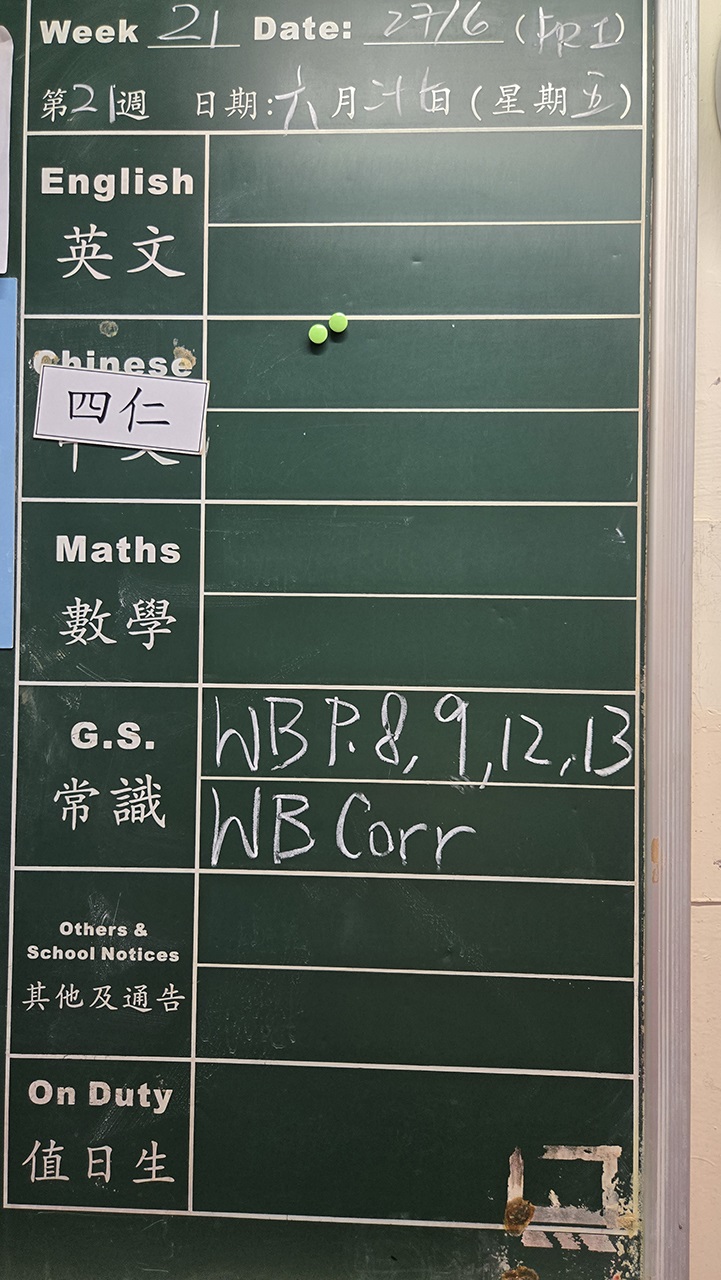 Week 21 Date: 27/6 (FRI)
第21週 日期:六月廿七日(星期五)
English
英文
Chinese
四仁
Maths
數學
G.S.
常識
WB P.8, 9, 12, 13
WB Corr
Others &
School Notices
其他及通告
On Duty
值日生